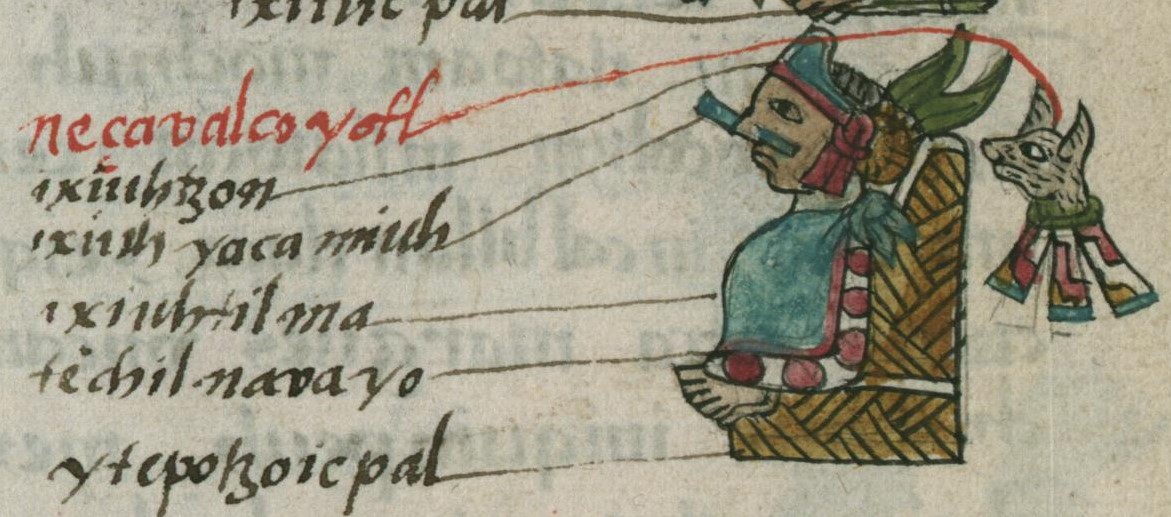 ixiuic pal
neçavalcoyotl
ixiuhtzon
ixiuh yaca miuh
ixiuhtilma
tēchilnavayo
ytepotzoicpal